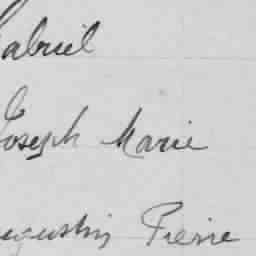 Gabriel
Joseph Marie
Augustin Pierre